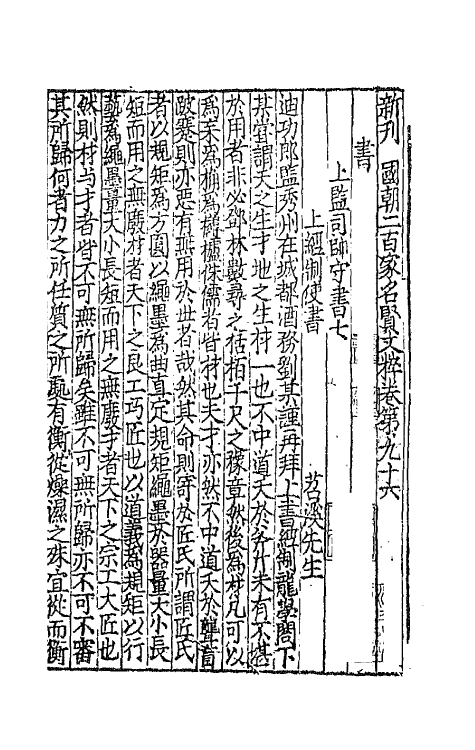 新刊國朝二百家名賢文粹卷第九十六
書
上監司帥守書七
上經制使書 苕溪先生
迪功郎監秀州在城都酒務劉某謹再拜上書經制龍學閣下
某嘗謂天之生才地之生材一也不中道夭於斧斤未有不堪
於用者非必鄧林數尋之栝栢千尺之豫章然後為材凡可以
為杗為桷為欂櫨侏儒者皆材也夫才亦然不中道夭於聾盲
跛躄則亦惡有無用於世者哉然其命則寄於匠氏所謂匠氏
者以規矩為方圓以繩墨為曲直定規矩繩墨於器量大小長
短而用之無廢材者天下之良工巧匠也以道義為規矩以行
藝為繩墨量大小長短而用之無廢才者天下之宗工大匠也
然則材与才者皆不可無所歸矣雖不可無所歸亦不可不審
其所歸何者力之所任質之所䖏有衡從燥濕之殊宜從而衡